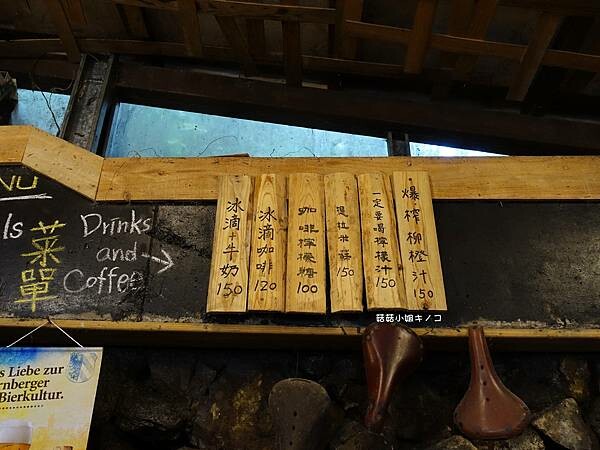 NU
ls
菜單
Drinks
and →
Coffee
冰滴牛奶
150
冰滴咖啡
120
咖啡檸檬糖
100
提拉米蘇
150
一定要喝檸檬汁
150
爆榨柳橙汁
150
菇菇小姐キノコ
s Liebe zur
rnberger
Bierkultur.